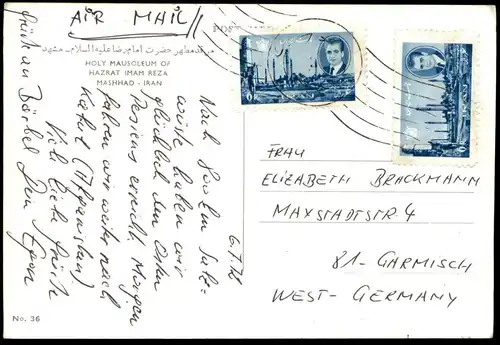 AIR MAIL
POST
مرقد مطهر حضرت امام رضا علیه السلام - مشهد
HOLY MAUSOLEUM OF
HAZRAT IMAM REZA
MASHHAD - IRAN
6.7.72
Nach 800 km Salz-
wüste haben wir
glücklich den Osten
Persiens erreicht. Morgen
fahren wir weiter nach
Kabul (Afganistan)
Viele liebe Grüße
Dein Egon
Grüße an Bärbel
FRAU
ELIZABETH BRACKMANN
MAXSTADTSTR. 4
81-GARMISCH
WEST-GERMANY
No. 36